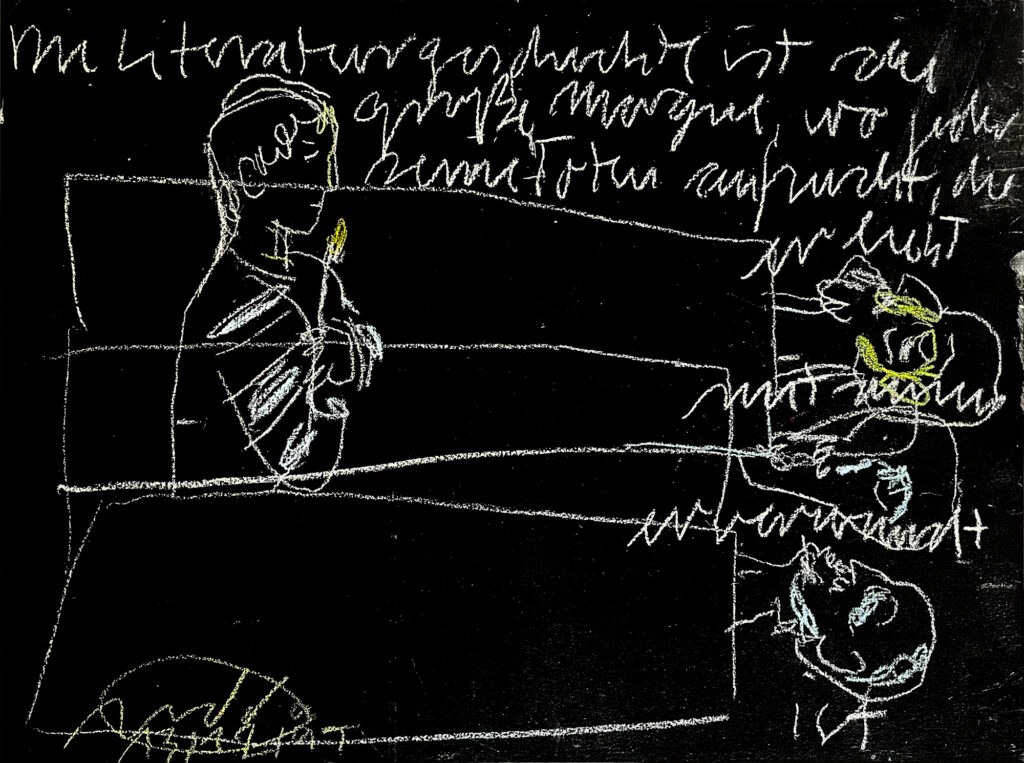 Die Literaturgeschichte ist die
große Morgue, wo jeder
seine Toten aufsucht, die
er liebt
mit
er verwandt
ist